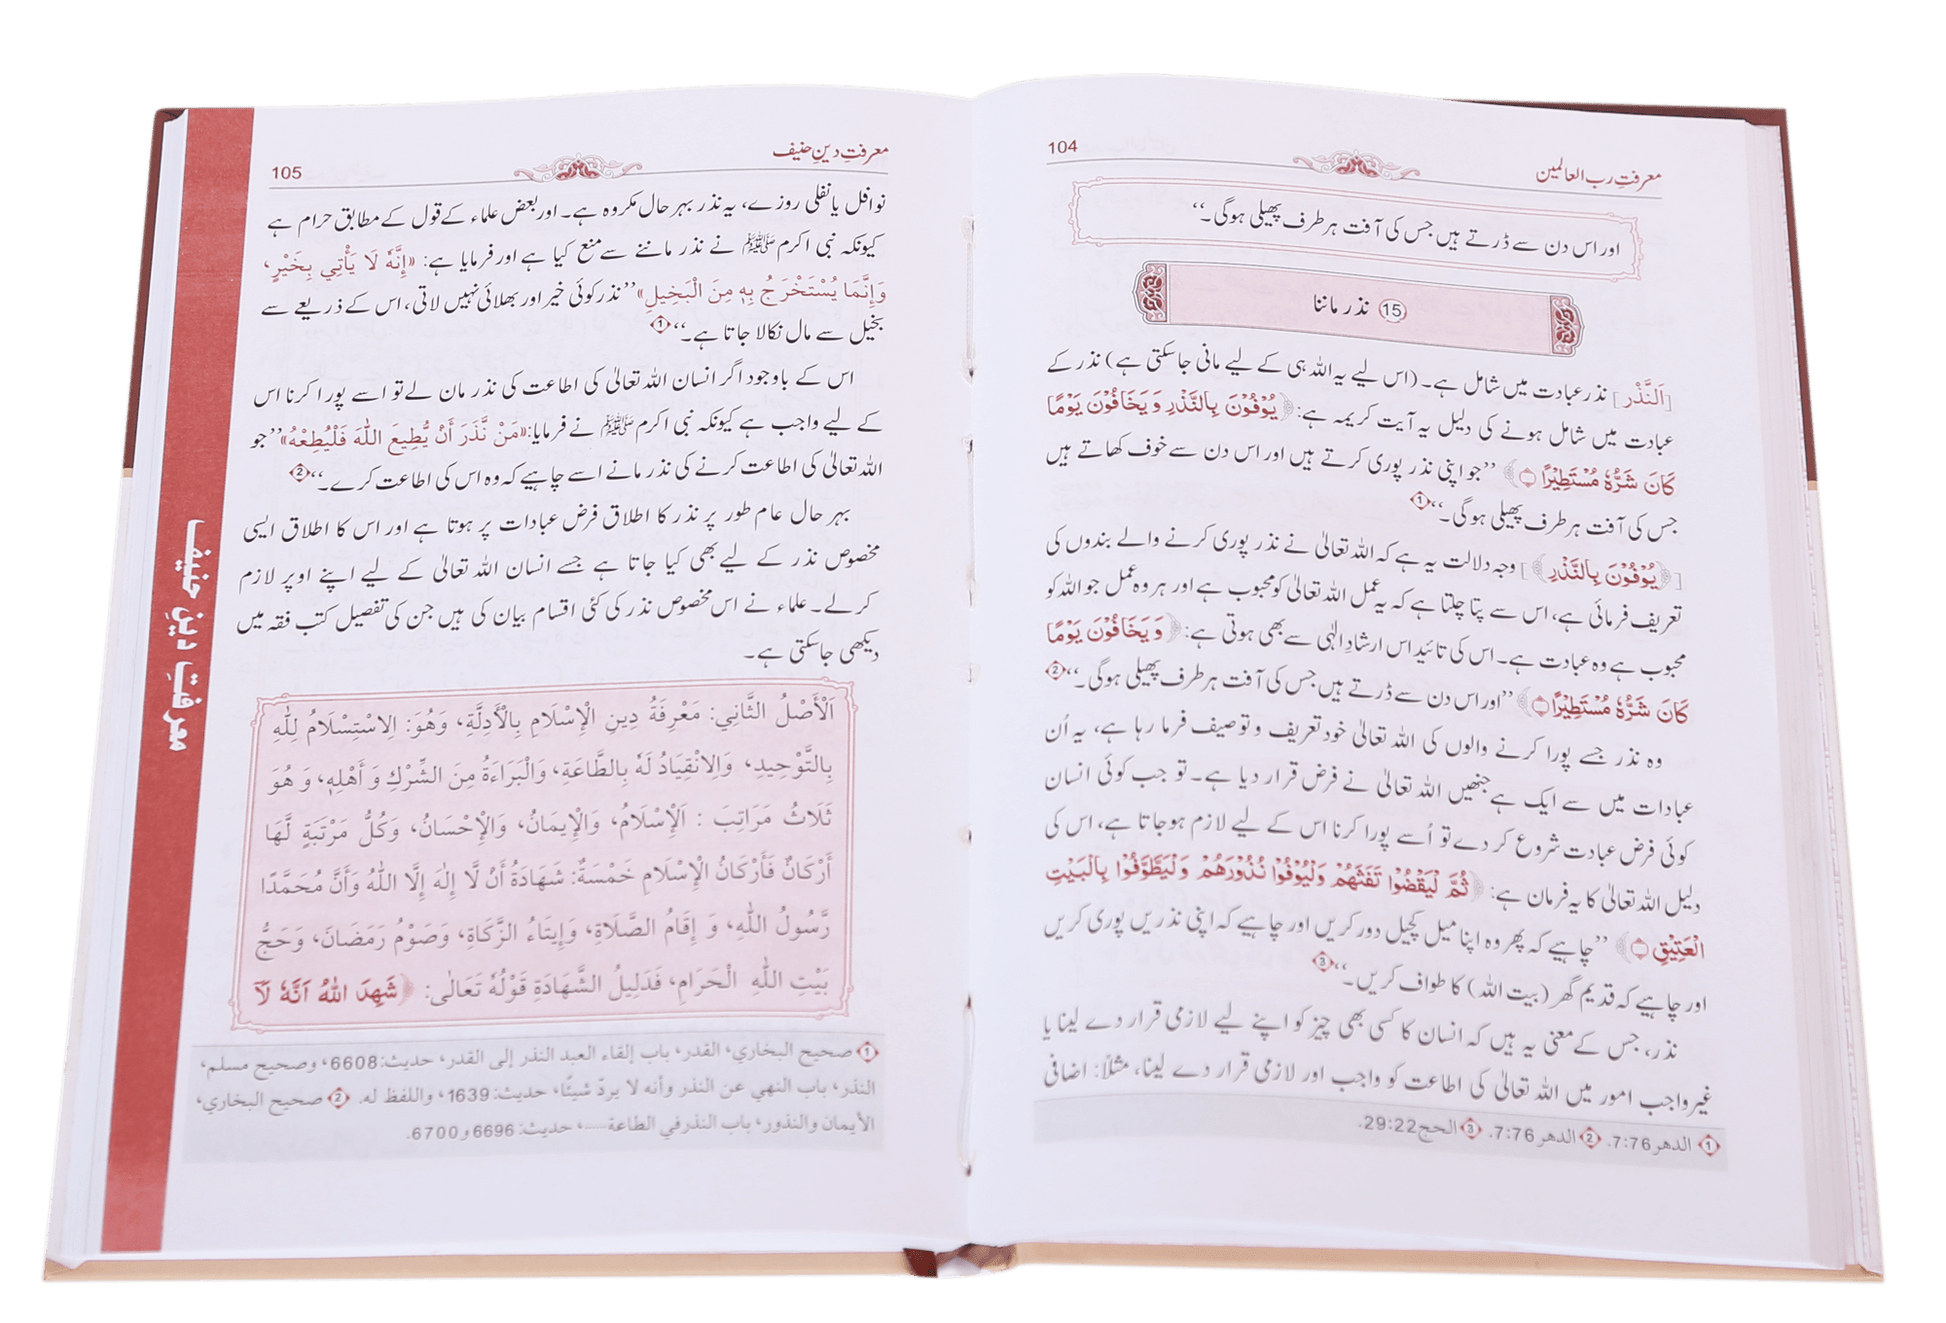 معرفتِ رب العالمین
104
اور اس دن سے ڈرتے ہیں جس کی آفت ہر طرف پھیلی ہوگی۔‘‘
15 نذر ماننا
[اَلنَّذْر] نذر عبادت میں شامل ہے۔ (اس لیے یہ اللہ ہی کے لیے مانی جاسکتی ہے) نذر کے
عبادت میں شامل ہونے کی دلیل یہ آیت کریمہ ہے: ﴿يُوْفُوْنَ بِالنَّذْرِ وَ يَخَافُوْنَ يَوْمًا
كَانَ شَرُّهٗ مُسْتَطِيْرًا﴾ ’’جو اپنی نذر پوری کرتے ہیں اور اس دن سے خوف کھاتے ہیں
جس کی آفت ہر طرف پھیلی ہوگی۔‘‘ 1
[﴿يُوْفُوْنَ بِالنَّذْرِ﴾] وجہ دلالت یہ ہے کہ اللہ تعالیٰ نے نذر پوری کرنے والے بندوں کی
تعریف فرمائی ہے، اس سے پتا چلتا ہے کہ یہ عمل اللہ تعالیٰ کو محبوب ہے اور ہر وہ عمل جو اللہ کو
محبوب ہے وہ عبادت ہے۔ اس کی تائید اس ارشادِ الٰہی سے بھی ہوتی ہے: ﴿وَ يَخَافُوْنَ يَوْمًا
كَانَ شَرُّهٗ مُسْتَطِيْرًا﴾ ’’اور اس دن سے ڈرتے ہیں جس کی آفت ہر طرف پھیلی ہوگی۔‘‘ 2
وہ نذر جسے پورا کرنے والوں کی اللہ تعالیٰ خود تعریف و توصیف فرما رہا ہے، یہ اُن
عبادات میں سے ایک ہے جنھیں اللہ تعالیٰ نے فرض قرار دیا ہے۔ تو جب کوئی انسان
کوئی فرض عبادت شروع کر دے تو اُسے پورا کرنا اس کے لیے لازم ہوجاتا ہے، اس کی
دلیل اللہ تعالیٰ کا یہ فرمان ہے: ﴿ثُمَّ لْيَقْضُوْا تَفَثَهُمْ وَلْيُوْفُوْا نُذُوْرَهُمْ وَلْيَطَّوَّفُوْا بِالْبَيْتِ
الْعَتِيْقِ﴾ ’’چاہیے کہ پھر وہ اپنا میل کچیل دور کریں اور چاہیے کہ اپنی نذریں پوری کریں
اور چاہیے کہ قدیم گھر (بیت اللہ) کا طواف کریں۔‘‘ 3
نذر، جس کے معنی یہ ہیں کہ انسان کا کسی بھی چیز کو اپنے لیے لازمی قرار دے لینا یا
غیر واجب امور میں اللہ تعالیٰ کی اطاعت کو واجب اور لازمی قرار دے لینا، مثلاً: اضافی
1 الدهر 7:76. 2 الدهر 7:76. 3 الحج 29:22.
معرفتِ دینِ حنیف
105
نوافل یا نفلی روزے، یہ نذر بہر حال مکروہ ہے۔ اور بعض علماء کے قول کے مطابق حرام ہے
کیونکہ نبی اکرم ﷺ نے نذر ماننے سے منع کیا ہے اور فرمایا ہے: «إِنَّهُ لَا يَأْتِي بِخَيْرٍ،
وَإِنَّمَا يُسْتَخْرَجُ بِهٖ مِنَ الْبَخِيلِ» ’’نذر کوئی خیر اور بھلائی نہیں لاتی، اس کے ذریعے سے
بخیل سے مال نکالا جاتا ہے۔‘‘ 1
اس کے باوجود اگر انسان اللہ تعالیٰ کی اطاعت کی نذر مان لے تو اسے پورا کرنا اس
کے لیے واجب ہے کیونکہ نبی اکرم ﷺ نے فرمایا: «مَنْ نَّذَرَ أَنْ يُّطِيعَ اللّٰهَ فَلْيُطِعْهُ» ’’جو
اللہ تعالیٰ کی اطاعت کرنے کی نذر مانے اسے چاہیے کہ وہ اس کی اطاعت کرے۔‘‘ 2
بہر حال عام طور پر نذر کا اطلاق فرض عبادات پر ہوتا ہے اور اس کا اطلاق ایسی
مخصوص نذر کے لیے بھی کیا جاتا ہے جسے انسان اللہ تعالیٰ کے لیے اپنے اوپر لازم
کرلے۔ علماء نے اس مخصوص نذر کی کئی اقسام بیان کی ہیں جن کی تفصیل کتب فقہ میں
دیکھی جاسکتی ہے۔
اَلْأَصْلُ الثَّانِي: مَعْرِفَةُ دِينِ الْإِسْلَامِ بِالْأَدِلَّةِ، وَهُوَ: اِلاسْتِسْلَامُ لِلّٰهِ
بِالتَّوْحِيدِ، وَالِانْقِيَادُ لَهُ بِالطَّاعَةِ، وَالْبَرَاءَةُ مِنَ الشِّرْكِ وَ أَهْلِهٖ، وَ هُوَ
ثَلَاثُ مَرَاتِبَ : اَلْإِسْلَامُ، وَالْإِيمَانُ، وَالْإِحْسَانُ، وَكُلُّ مَرْتَبَةٍ لَّهَا
أَرْكَانٌ فَأَرْكَانُ الْإِسْلَامِ خَمْسَةٌ: شَهَادَةُ أَنْ لَّا إِلٰهَ إِلَّا اللّٰهُ وَأَنَّ مُحَمَّدًا
رَّسُولُ اللّٰهِ، وَ إِقَامُ الصَّلَاةِ، وَإِيتَاءُ الزَّكَاةِ، وَصَوْمُ رَمَضَانَ، وَحَجُّ
بَيْتِ اللّٰهِ الْحَرَامِ، فَدَلِيلُ الشَّهَادَةِ قَوْلُهُ تَعَالٰى: ﴿شَهِدَ اللّٰهُ اَنَّهٗ لَاۤ
1 صحيح البخاري، القدر، باب إلقاء العبد النذر إلى القدر، حديث: 6608، وصحيح مسلم،
النذر، باب النهي عن النذر وأنه لا يردّ شيئًا، حديث: 1639، واللفظ له. 2 صحيح البخاري،
الأيمان والنذور، باب النذر في الطاعة....، حديث: 6696 و 6700.
معرفتِ دینِ حنیف